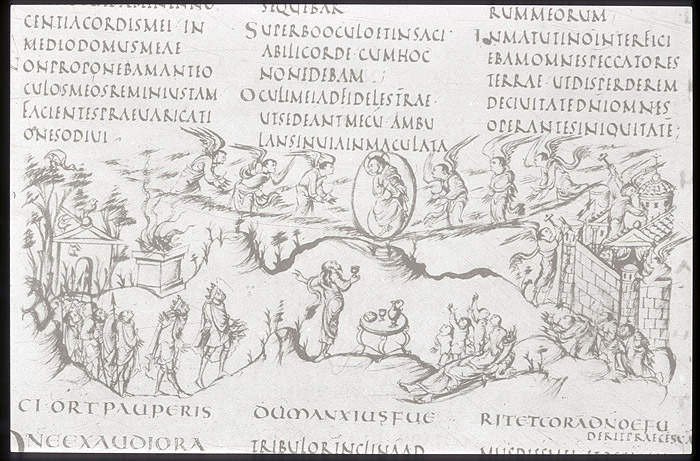 CENTIACORDISMEI IN
MEDIODOMUSMEAE
ONPROPONEBAMANTEO
CULOSMEOSREMINIUSTAM
FACIENTESPRAEUARICATI
ONESODIUI
SEQUEBAR
SUPERBOOCULOETINSACI
ABILICORDE·CUMHOC
NONEDEBAM
OCULIMEIADFIDELESTRAE·
UTSEDEANTMECU·AMBU
LANSINUIAINMACULATA
RUMMEORUM
INMATUTINOINTERFICI
EBAMOMNESPECCATORES
TERRAE·UTDISPERDEREM
DECIUITATEDNIOMNES
OPERANTESINIQUITATE;
CI·ORTPAUPERIS DUMANXIUSFUE RITETCORADNOEFU
DERITPRAECESU
DNEEXAUDIORA TRIBULORINCLINAAD